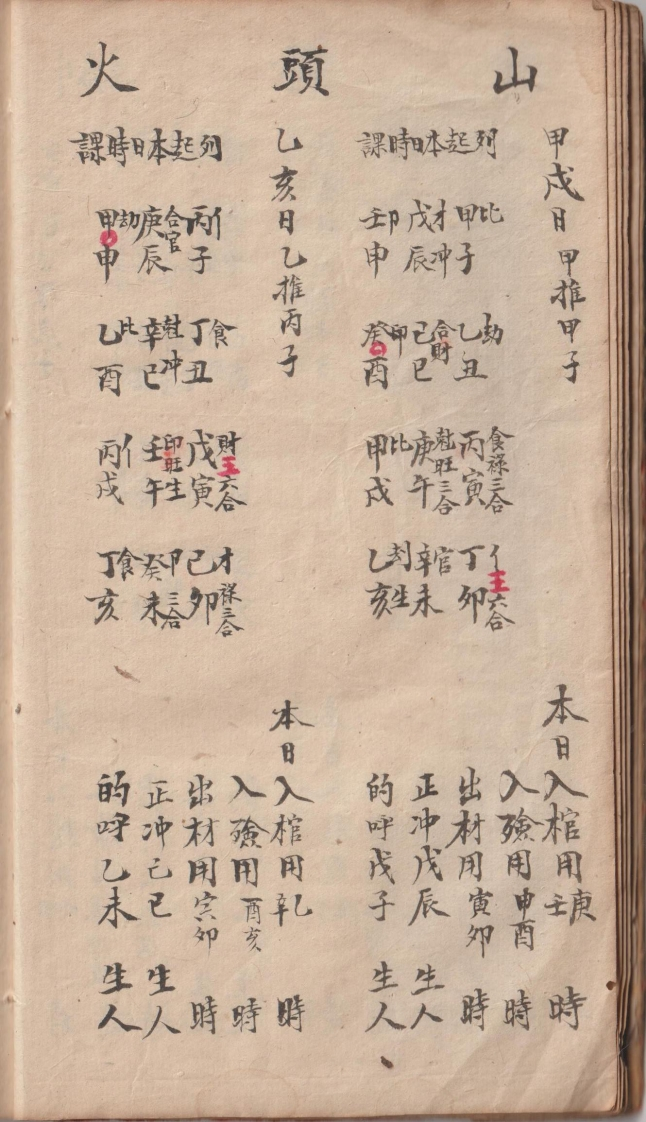 山頭火
甲戌日甲推甲子
列起本日時課
甲子比
乙丑劫
丙寅食祿三合
丁卯亻王六合
戊辰才冲
己巳合財
庚午旺三合
辛未官
壬申卩
癸酉印
甲戌比
乙亥生
本日入棺用庚壬時
入殮用申酉時
出材用寅卯時
正冲戊辰生人
的呼戊子生人
乙亥日乙推丙子
列起本日時課
丙子亻
丁丑食
戊寅財王六合
己卯才祿三合
庚辰合官
辛巳冲
壬午印旺生
癸未卩三合
甲申劫
乙酉比
丙戌亻
丁亥食
本日入棺用乙辛時
入殮用酉亥時
出材用寅卯時
正冲己巳生人
的呼乙未生人